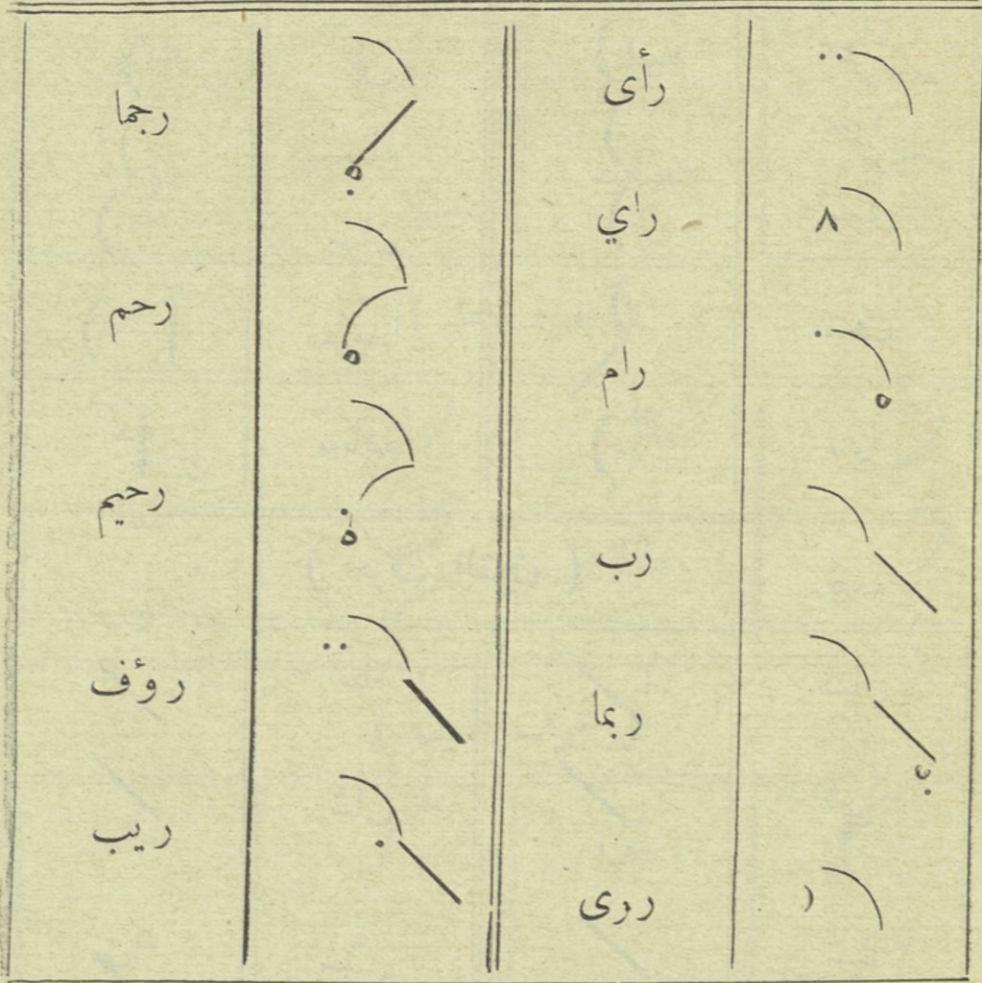 رأى
راي
رام
رب
ربما
روى
رجما
رحم
رحيم
رؤف
ريب